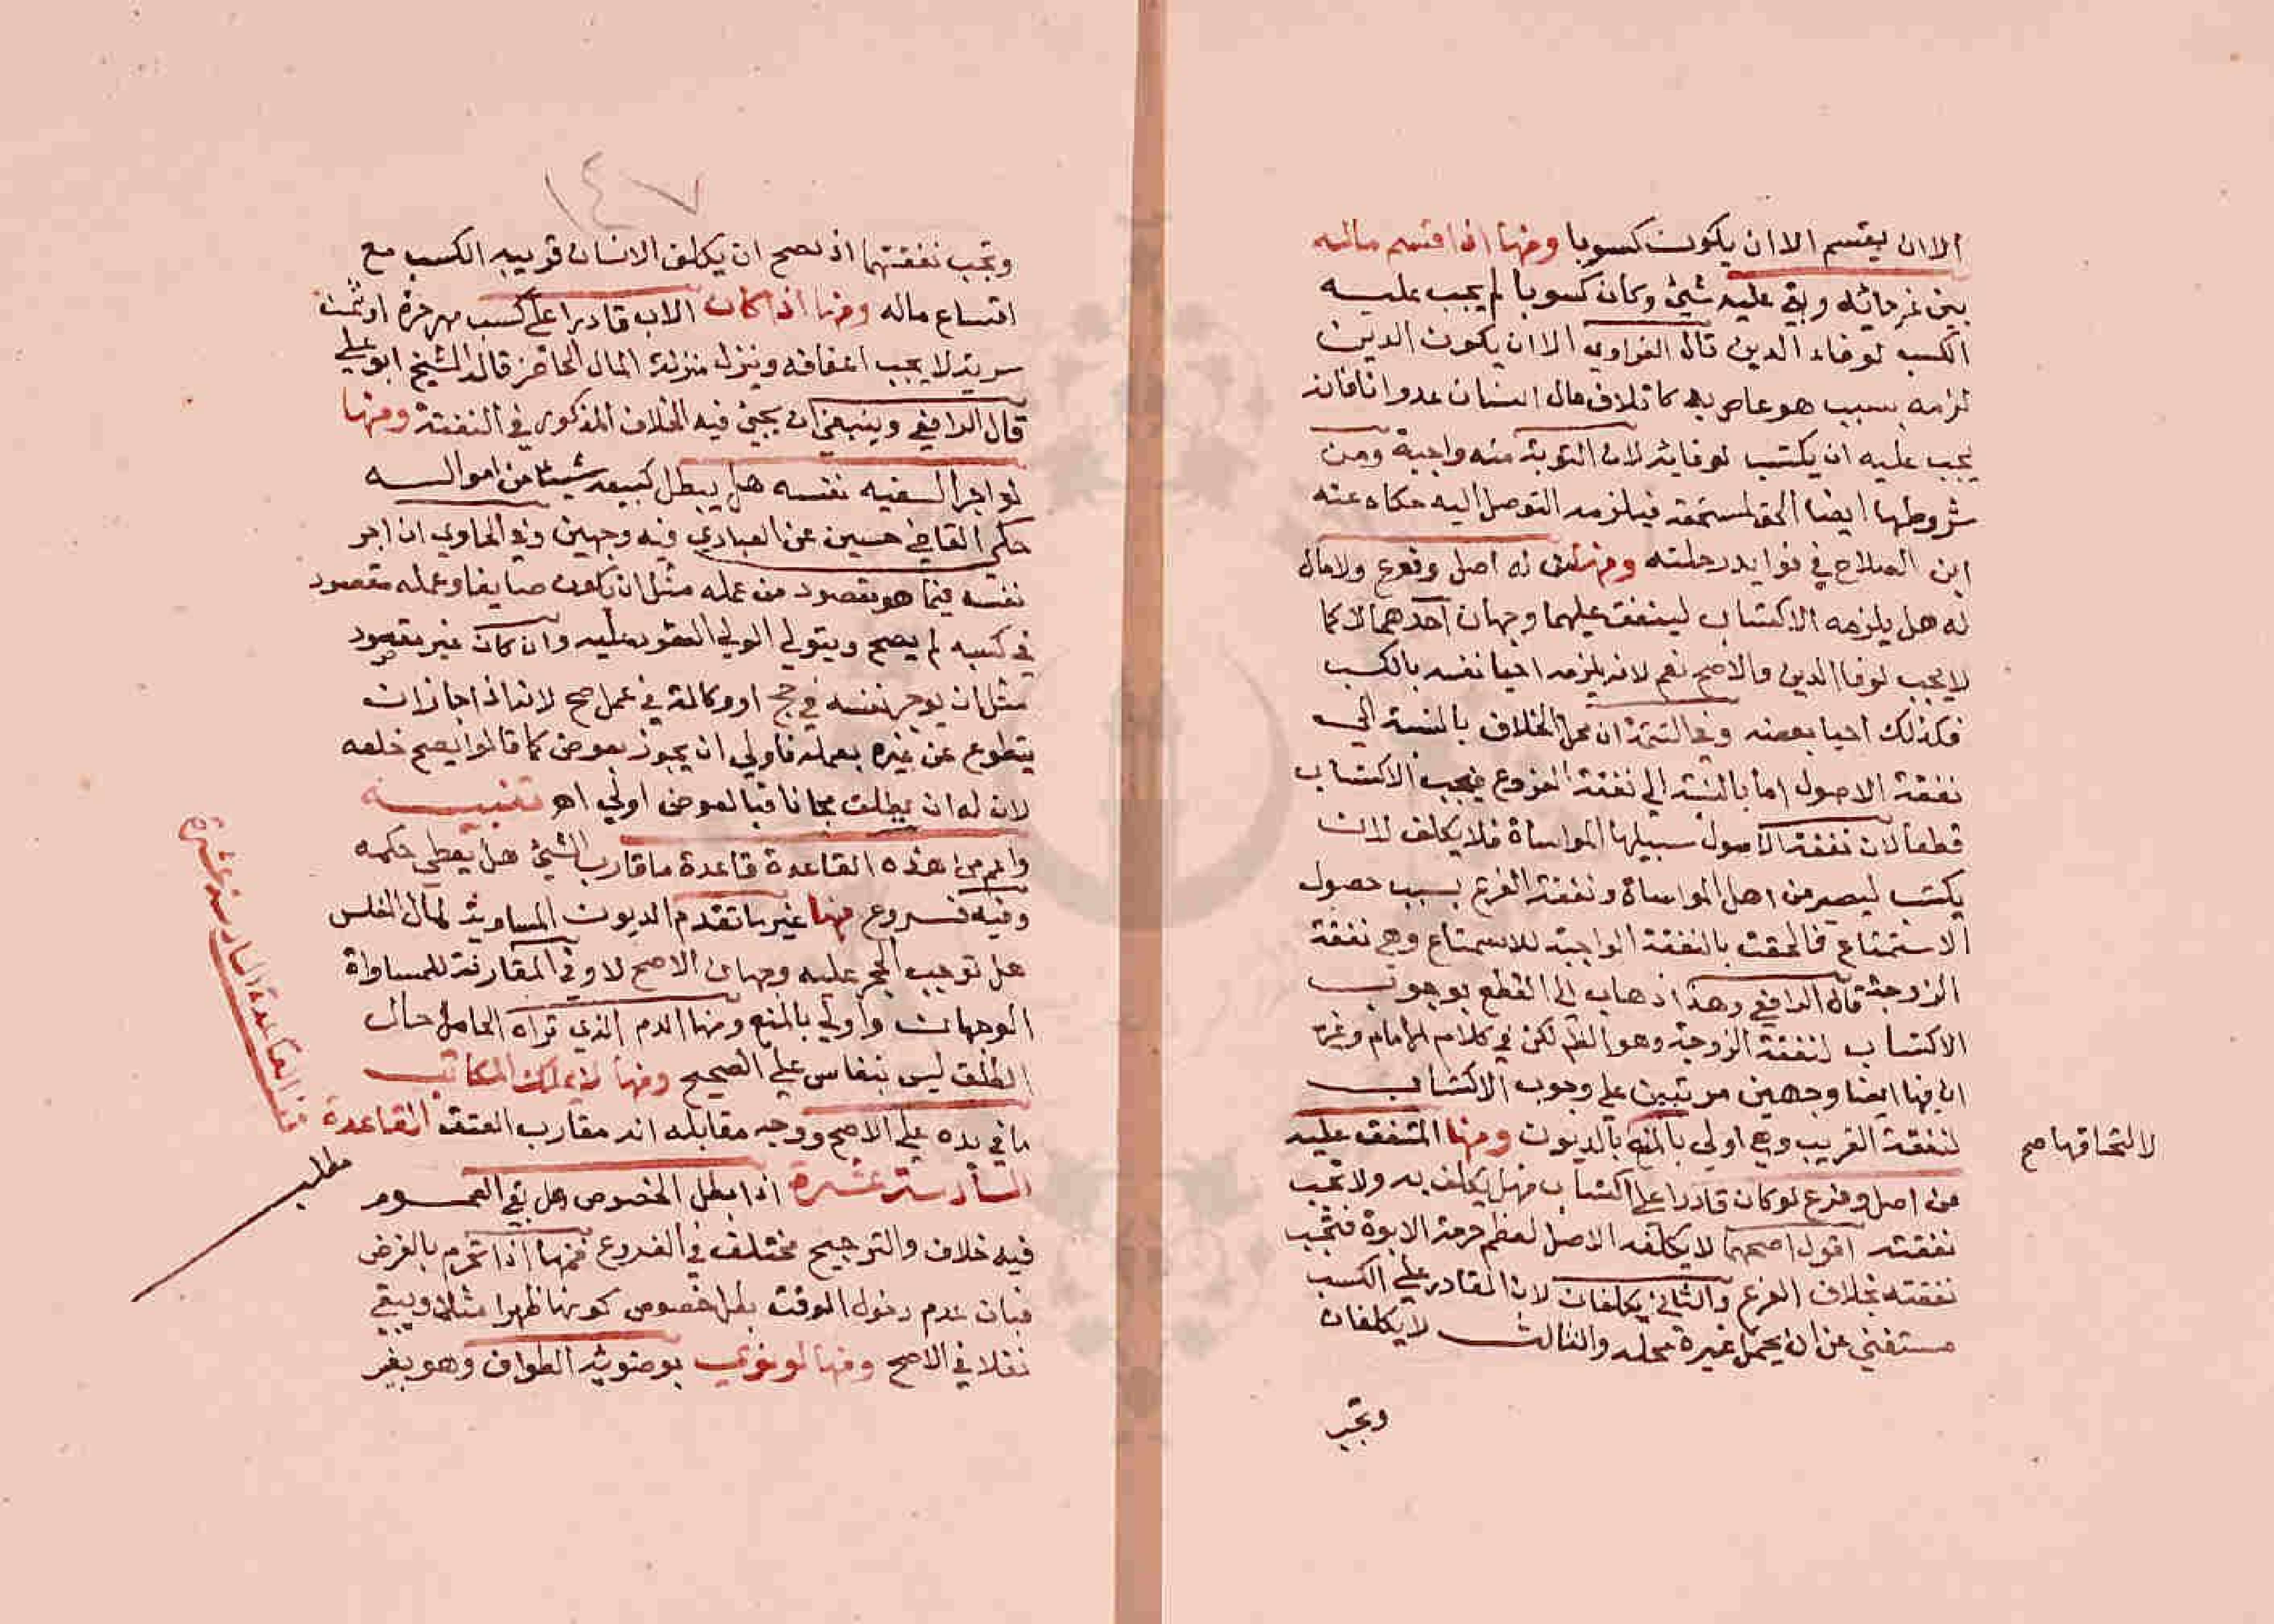 الا ان يقسم الا ان يكون كسوبا ومنها اذا اقتسم ماله
بين غرمائه وبقي عليه شيئ وكان كسوبا لم يجب عليه
الكسب لوفاء الدين قال الفراوي الا ان يكون الدين
لزمه بسبب هو عاص به كاتلاف مال انسان عدوانا فانه
يجب عليه ان يكتسب لوفايه لان التوبة منه واجبة ومن
شروطها ايضا الحق لمستحقه فيلزمه التوصل اليه حكاه عنه
ابن الصلاح في فوايد رحلته ومنها من له اصل وفرع ولا مال
له هل يلزمه الاكتساب لينفق عليهما وجهان احدهما لا كما
لا يجب لوفا الدين والاصح نعم لانه يلزمه احيا نفسه بالكسب
فكذلك احيا بعضه وفي التتمة ان محل الخلاف بالنسبة الي
نفقة الاصول اما بالنسبة الي نفقة الفروع فيجب الاكتساب
قطعا لان نفقة الاصول سبيلها المواساة فلا يكلف لان
يكتسب ليصير من اهل المواساة ونفقة الفرع بسبب حصول
الاستمتاع فالحقت بالنفقة الواجبة للاستمتاع وهي نفقة
الزوجة قال الرافعي وهذا ذهاب الي القطع بوجوب
الاكتساب لنفقة الزوجة وهو الظ لكن في كلام الامام وغيره
ان فيها ايضا وجهين مرتبين علي وجوب الاكتساب
لنفقة القريب وهي اولي بالمنع بالديون ومنها المنفق عليه
لالتحاقها صح
من اصل وفرع لو كان قادرا علي اكتساب فهل يكلف به ولا تجب
نفقته اقول اصحهما لا يكلفه الاصل لعظم حرمة الابوة فتجب
نفقته بخلاف الفرع والثاني يكلفان لان القادر علي الكسب
مستغني عن ان يحمل غيره محله والثالث لا يكلفان
وتجب
١٤٧
وتجب نفقتهما اذ نصح ان يكلف الانسان قريبه الكسب مع
اتساع ماله ومنها اذا كان الاب قادرا علي كسب مهر حرة او ثمن
سرية لا يجب اعفافه وينزل منزلة المال الحاضر قاله الشيخ ابو علي
قال الرافعي وينبغي ان يجيئ فيه الخلاف المذكور في النفقة ومنها
لو اجر السفيه نفسه هل يبطل كبيعه شيئا من امواله
حكي القاضي حسين عن العبادي فيه وجهين وفي الحاوي ان اجر
نفسه فيما هو مقصود من عمله مثل ان يكون صايغا وعمله مقصود
في كسبه لم يصح ويتولي الولي العقد عليه وان كان غير مقصود
مثل ان يوجر نفسه في حج او وكالة في عمل صح لانه اذا جاز ان
يتطوع عن غيره بعمله فاولي ان يجوز بعوض كما قالوا يصح خلعه
لان له ان يطلق مجانا فبالعوض اولي اهو تنبيه
واعم من هذه القاعدة قاعدة ما قارب الشيئ هل يعطي حكمه
وفيه فروع منها غير ما تقدم الديون المساوية لمال المفلس
هل توجب الحجر عليه وجهان الاصح لا وفي المقارنة للمساواة
الوجهان واولي بالمنع ومنها الدم الذي تراه الحامل حال
الطلق ليس بنفاس علي الصحيح ومنها لا يملك المكاتب
ما في يده علي الاصح ووجه مقابله انه مقارب العتق القاعدة
السادسة عشرة اذا بطل الخصوص هل بقي العموم
فيه خلاف والترجيح مختلف في الفروع فمنها اذا تحرم بالفرض
فبان عدم دخول الوقت بطل خصوص كونها ظهرا مثلا ويبقي
نفلا في الاصح ومنها لو نوي بوضوئه الطواف وهو بغير
القاعدة السادسة عشرة
مطلب